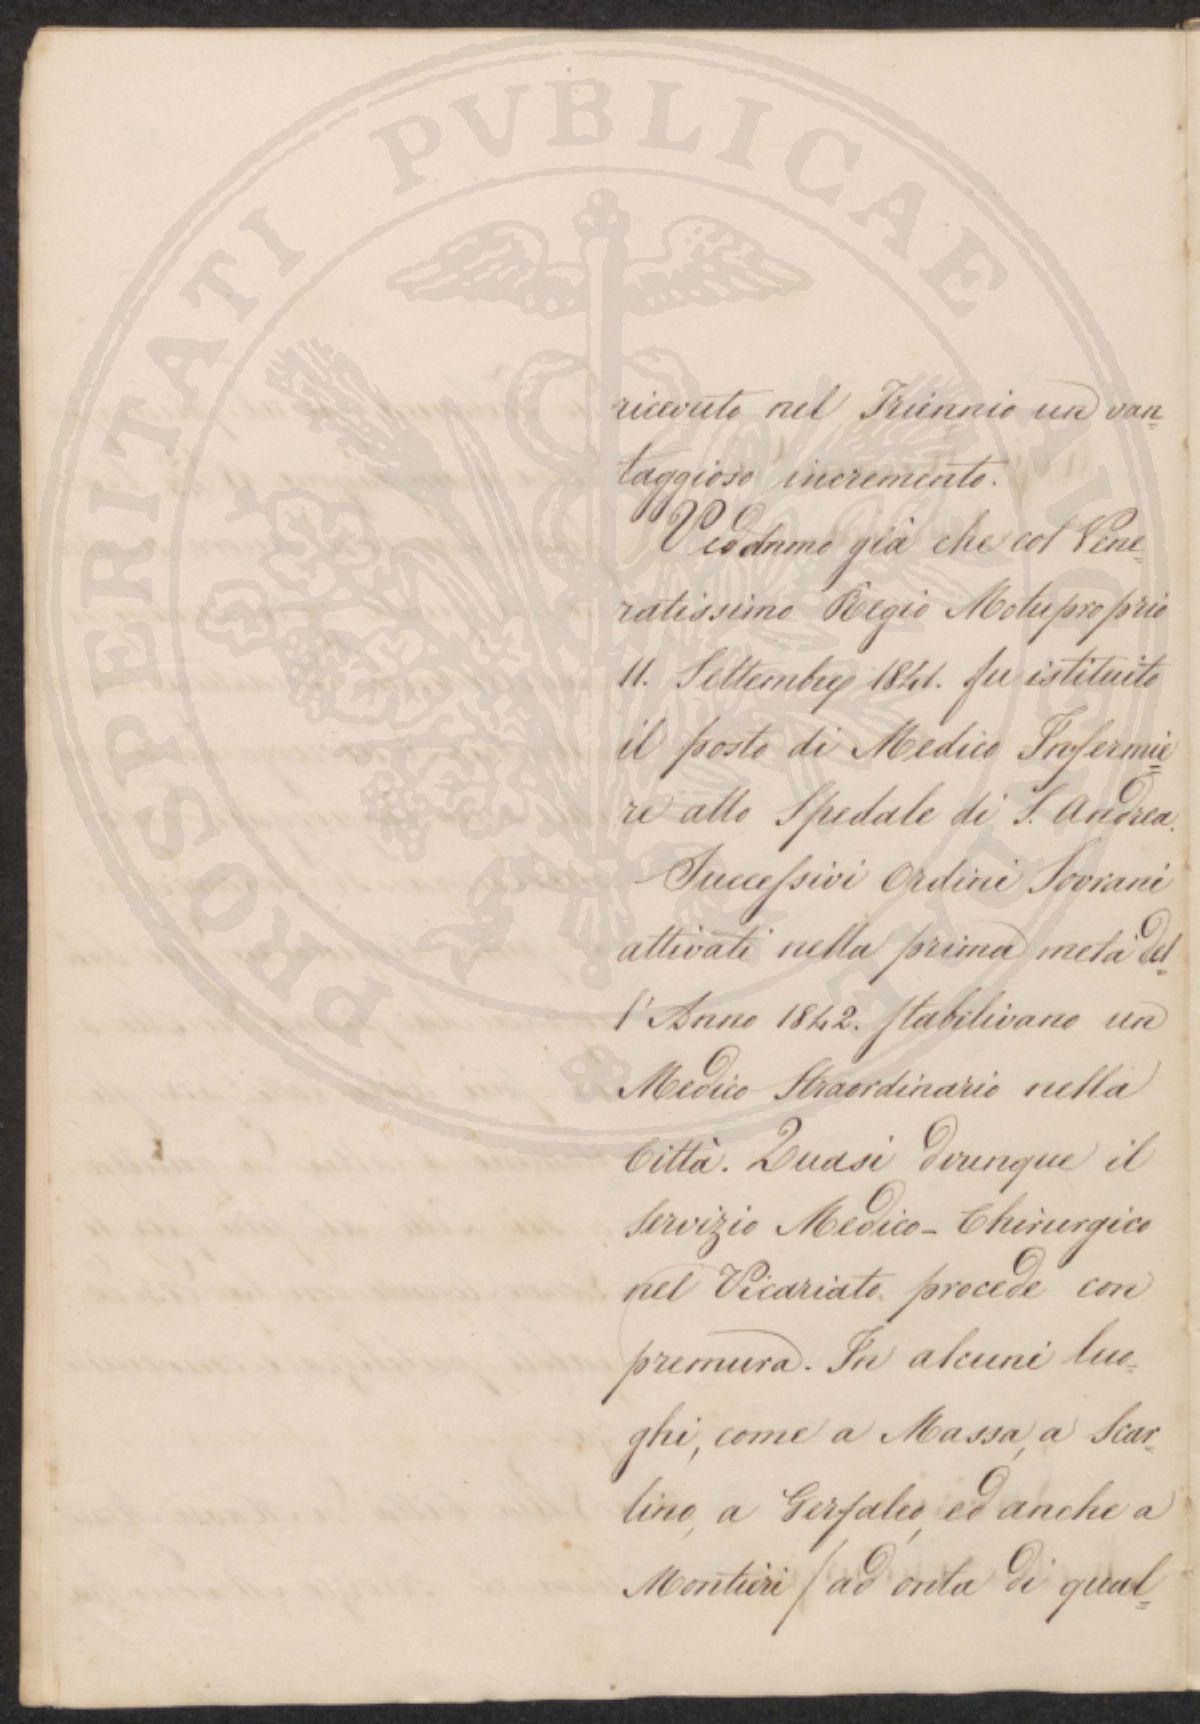 PROSPERITATI PVBLICAE
ricevuto nel Triennio un van=
taggioso incremento.
Vedemmo già che col Vene=
ratissimo Regio Motuproprio
11. Settembre 1841. fu istituito
il posto di Medico Infermie=
re allo Spedale di S. Andrea.
Successivi Ordini Sovrani
attivati nella prima metà del=
l'Anno 1842. stabilivano un
Medico Straordinario nella
Città. Quasi dovunque il
servizio Medico-Chirurgico
nel Vicariato procede con
premura. In alcuni luo=
ghi, come a Massa, a Scar=
lino, a Gerfalco, ed anche a
Montieri (ad onta di qual=